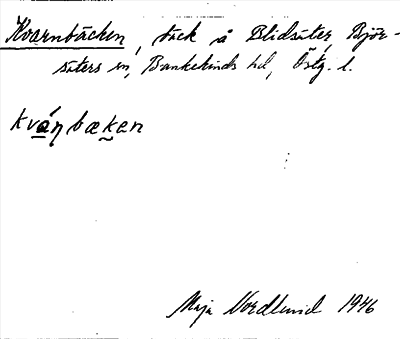 Kvarnbäcken, bäck å Blidsäter, Björ-
säters sn, Bankekinds hd, Östg. l.
kváŋbæken
Maja Nordlund 1946